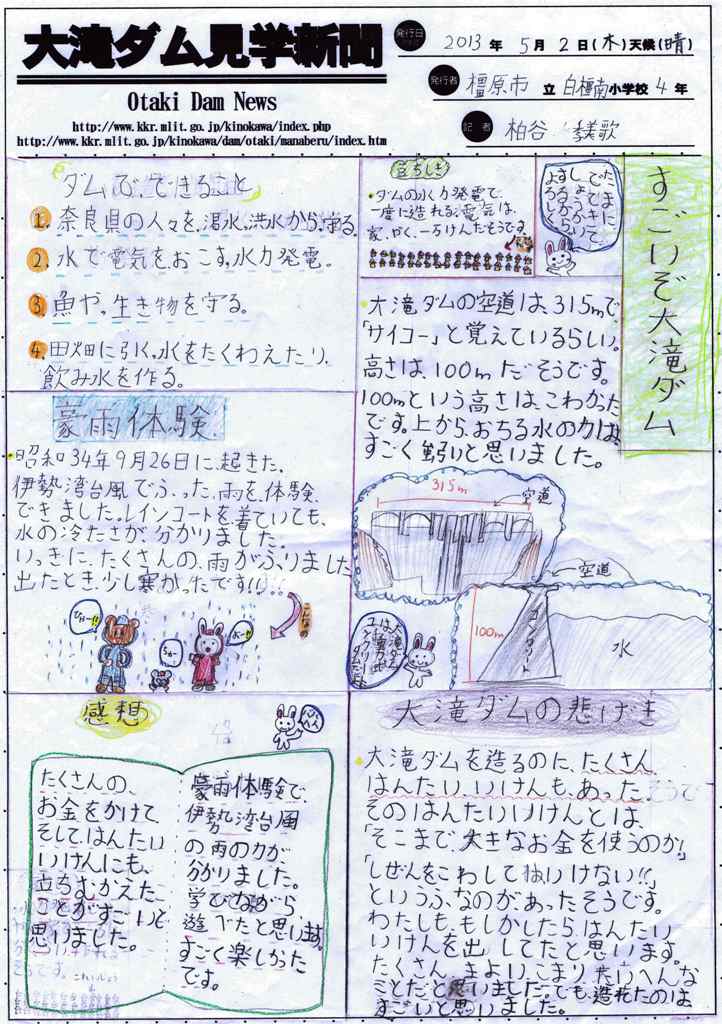 大滝ダム見学新聞
Otaki Dam News
http://www.kkr.mlit.go.jp/kinokawa/index.php
http://www.kkr.mlit.go.jp/kinokawa/dam/otaki/manaberu/index.htm
発行日 2013年 5月 2日(木)天候(晴)
発行者 橿原市 立 白橿南小学校 4年
記者 柏谷
すごいぞ大滝ダム
豆ちしき
・ダムの水力発電で、
一度に造れる電気は、
家、やく、一万けんだそうです。
・大滝ダムの空道は、315mで
「サイコー」と覚えているらしい。
高さは、100mだそうです。
100mという高さは、こわかった
です。上から、おちる水の力は、
すごく強いと思いました。
315m
空道
空道
100m
コンクリート
水
大滝ダム
は、重力式
コンクリート
ダムだよ
ダムで、できること
1. 奈良県の人々を、渇水、洪水から、守る。
2. 水で電気をおこす、水力発電。
3. 魚や、生き物を守る。
4. 田畑に引く、水をたくわえたり、
飲み水を作る。
豪雨体験
・昭和34年9月26日に起きた、
伊勢湾台風でふった、雨を、体験
できました。レインコートを着ていても、
水の冷たさが、分かりました。
いっきに、たくさんの、雨がふりました
出たとき、少し寒かったです!!
こんなの
大滝ダムの悲げき
・大滝ダムを造るのに、たくさん、
はんたい、いけんも、あった、そうで
そのはんたいいけんとは、
「そこまで、大きなお金を使うのか!」
「しぜんをこわしてはいけない!!」
というふなのがあったそうです。
わたしも、もしかしたら、はんたい
いけんを出してたと思います。
たくさん、まよい、こまり、たいへんな
ことだと思いました。でも、造れたのは
すごいと思いました。
感想
豪雨体験で、
伊勢湾台風
の雨の力が、
分かりました。
学びながら
遊べたと思います。
すごく楽しかった
です。
たくさんの、
お金をかけて、
そして、はんたい
いけんにも、
立ちむかえた、
ことがすごいと
思いました。